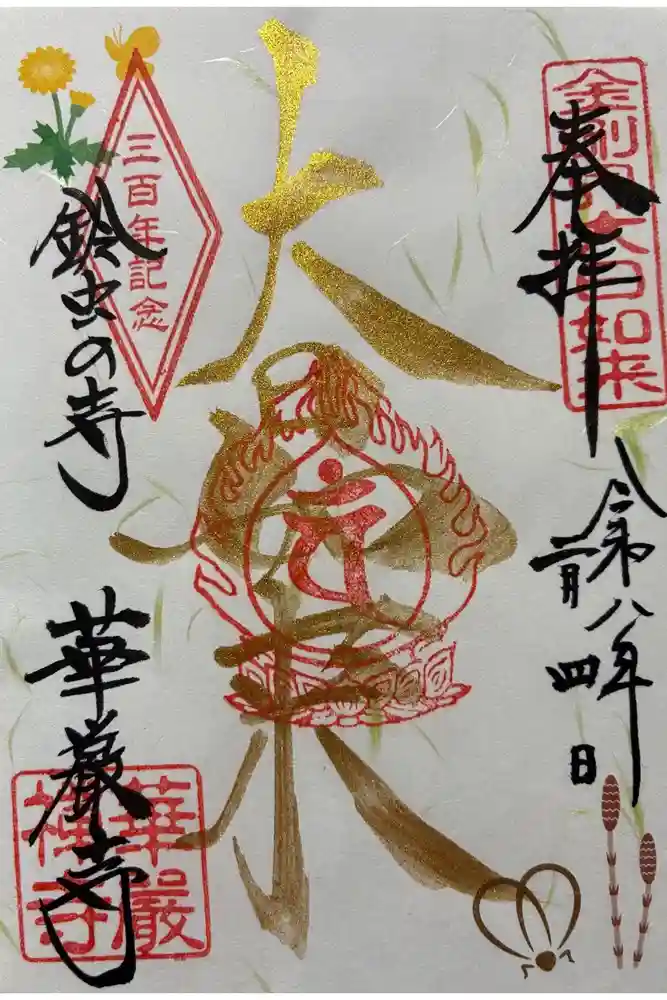 奉拝
金剛界大日如来
令和八年
二月四日
大日如来
三百年記念
鈴虫の寺
華厳寺
華嚴
禅寺